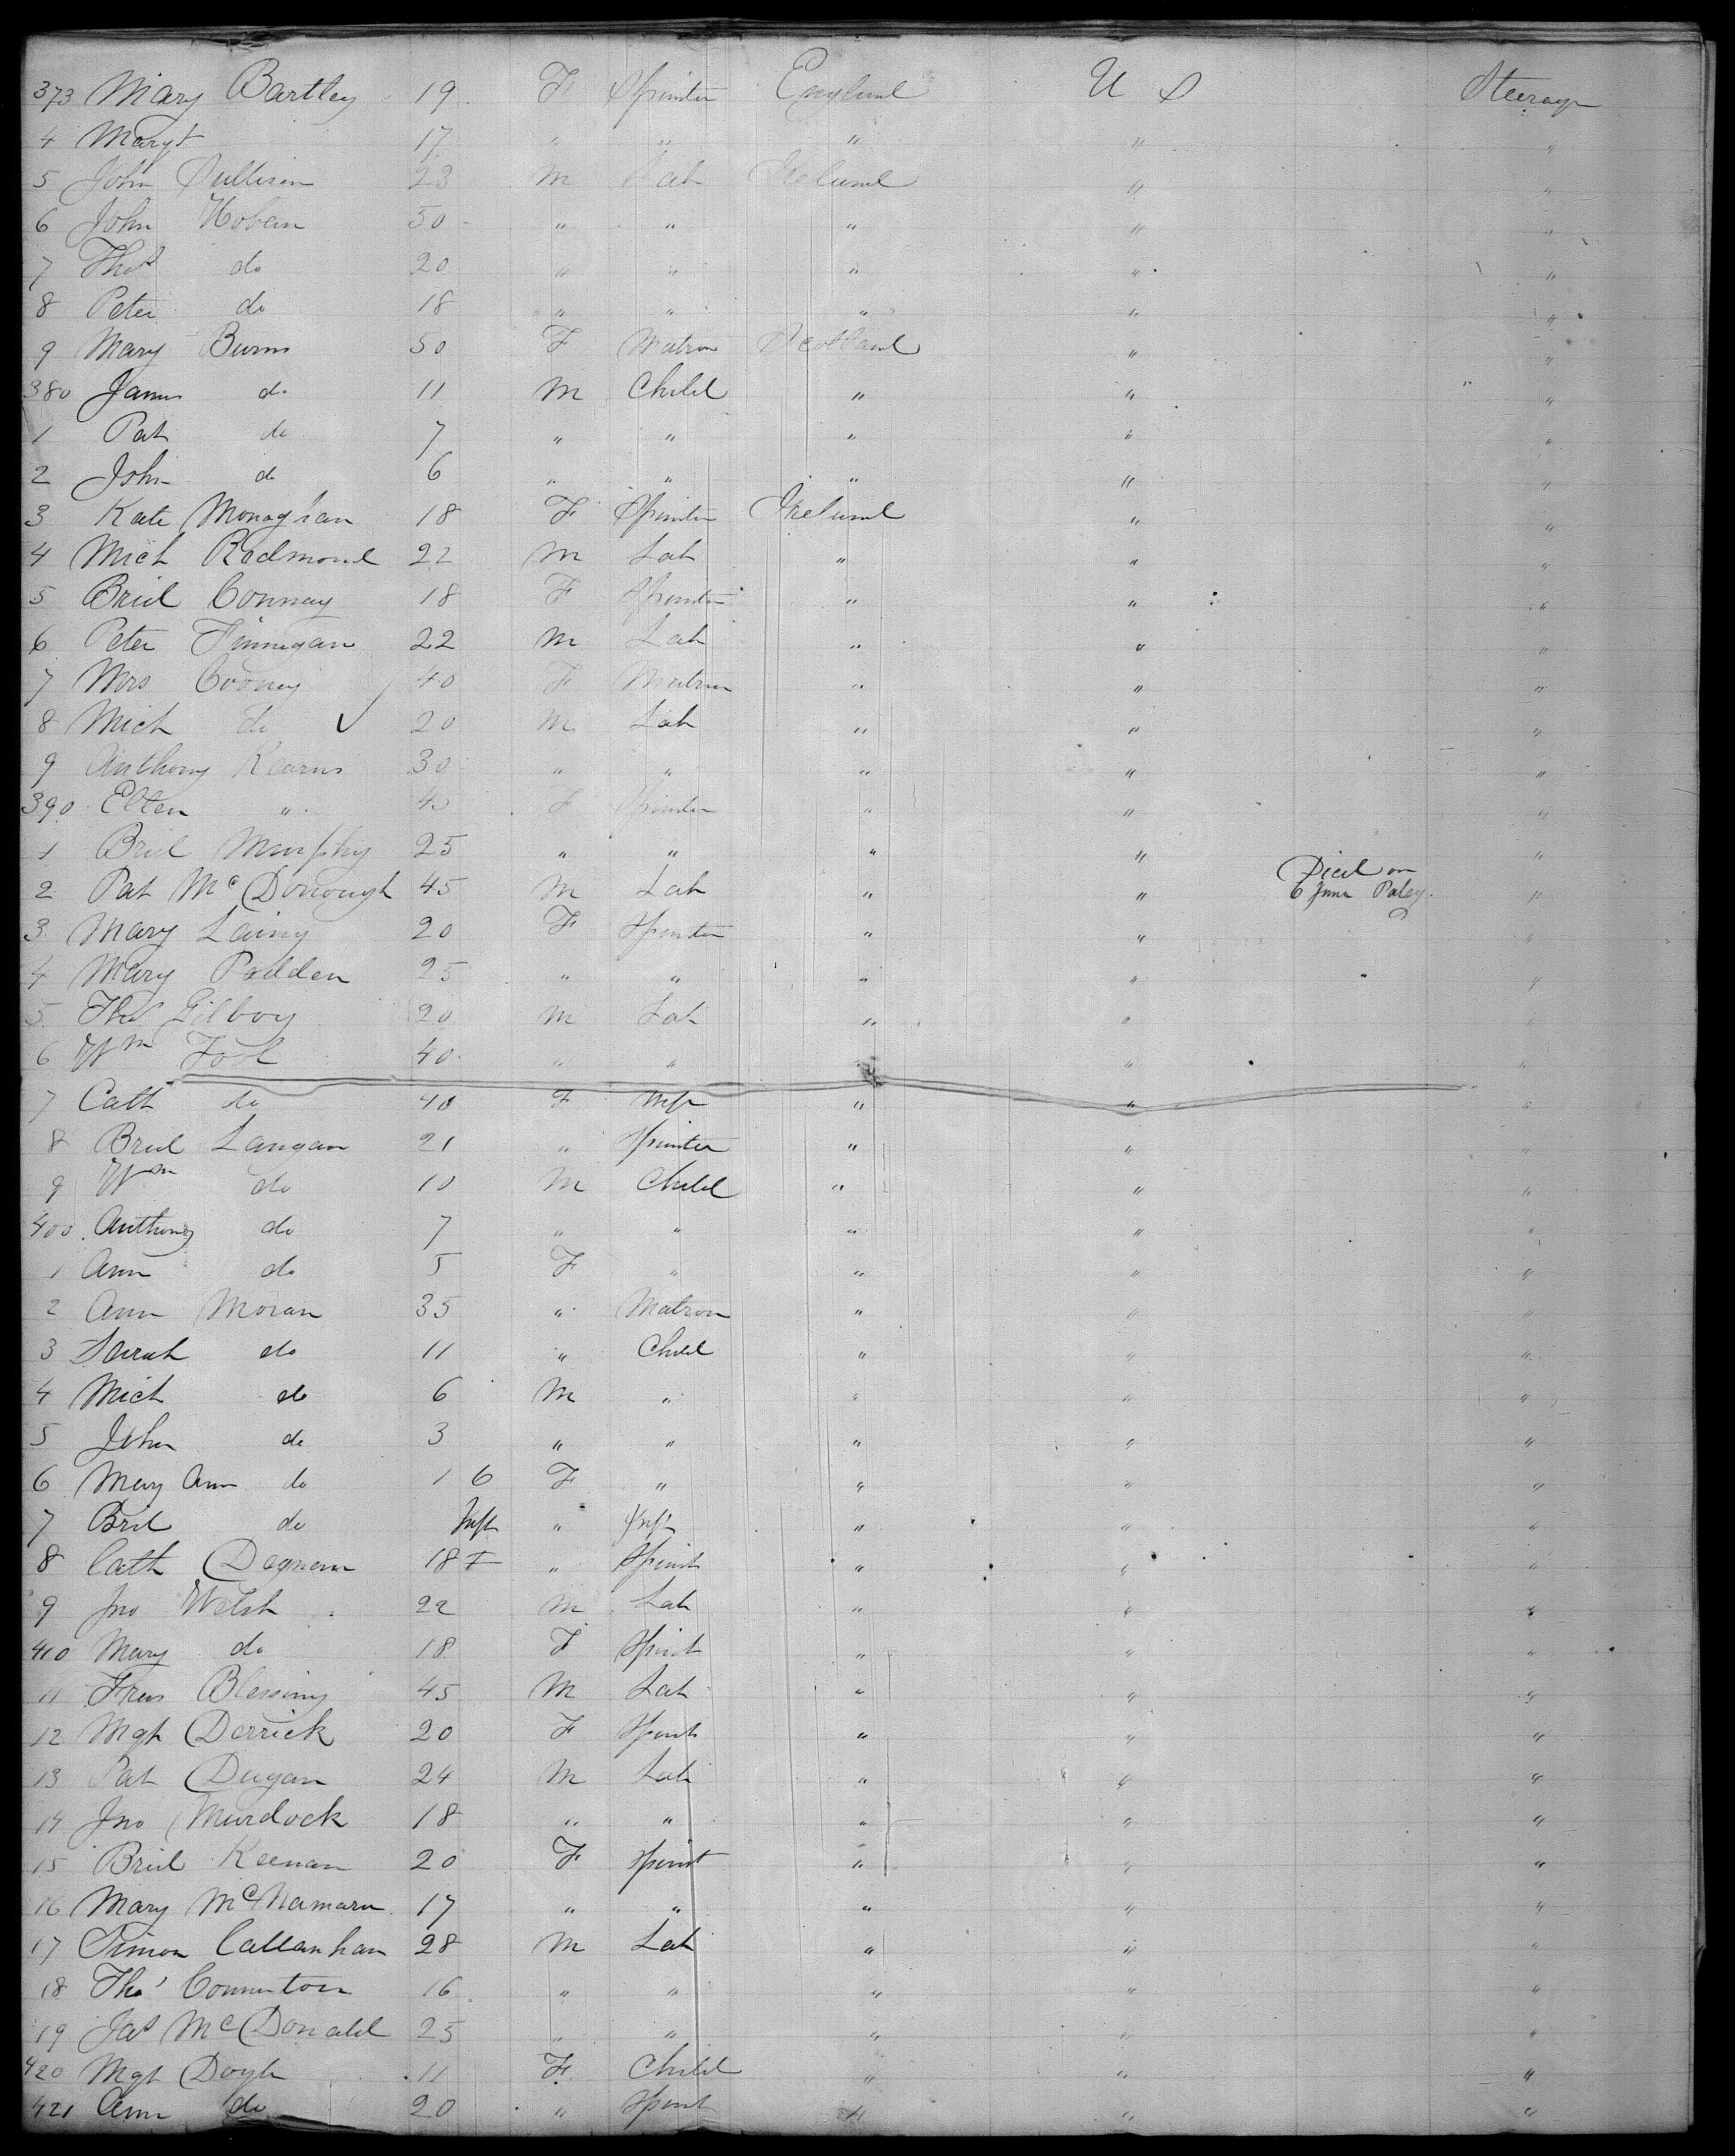 373 Mary Bartley 19 F Spinster England U S Steerage
4 Margt 17 " " " " "
5 John Sullivan 23 M Lab Ireland " "
6 John Hoban 50 " " " " "
7 Thos do 20 " " " " "
8 Peter do 18 " " " " "
9 Mary Burns 50 F Matron Scotland " "
380 James do 11 M Child " " "
1 Pat do 7 " " " " "
2 John do 6 " " " " "
3 Kate Monaghan 18 F Spinster Ireland " "
4 Mich Redmond 22 M Lab " " "
5 Brid Conway 18 F Spinster " " "
6 Peter Finnegan 22 M Lab " " "
7 Mrs Cooney 40 F Matron " " "
8 Mich do 20 M Lab " " "
9 Anthony Kearns 30 " " " " "
390 Ellen " F Spinster " " "
1 Brid Murphy 25 " " " " "
2 Pat McDonough 45 M Lab " " Died on 6 June "
3 Mary 20 F Spinster " " "
4 Mary Padden 25 " " " " "
5 Thos Gilboy 20 M Lab " " "
6 Wm 40 " " " " "
7 Cath do 40 F Wife " " "
8 Brid Langan 21 " Spinster " " "
9 Wm do 10 M Child " " "
400 Anthony do 7 " " " " "
1 Ann do 5 F " " " "
2 Ann Moran 35 " Matron " " "
3 Sarah do 11 " Child " " "
4 Mich do 6 M " " " "
5 John do 3 " " " " "
6 Mary Ann do 1 6 F " " " "
7 Brd do Inft " Inft " " "
8 Cath 18 " Spinst " " "
9 Jno Welsh 22 M Lab " " "
410 Mary do 18 F Spinst " " "
11 Fras Blessing 45 M Lab " " "
12 Mgt Derrick 20 F Spinst " " "
13 Pat Dugan 24 M Lab " " "
14 Jno Murdock 18 " " " " "
15 Brid Keenan 20 F Spinst " " "
16 Mary McNamara 17 " " " " "
17 Simon Callanhan 28 M Lab " " "
18 Thos Connerton 16 " " " " "
19 Jas McDonald 25 " " " " "
420 Mgt Doyle 11 F Child " " "
421 Ann do 20 " Spinst " " "